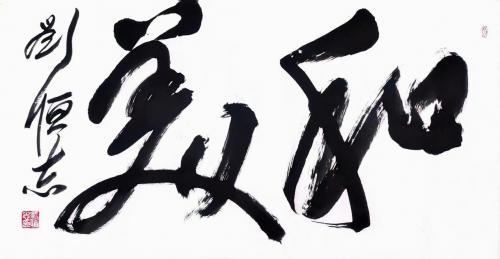 和美
劉恒志